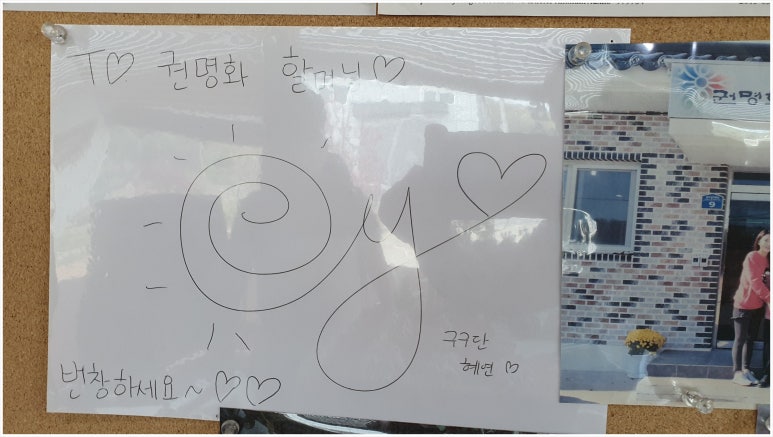 T♡ 권명화 할머니♡
번창하세요~♡♡
구구단
혜연♡
권명화
9